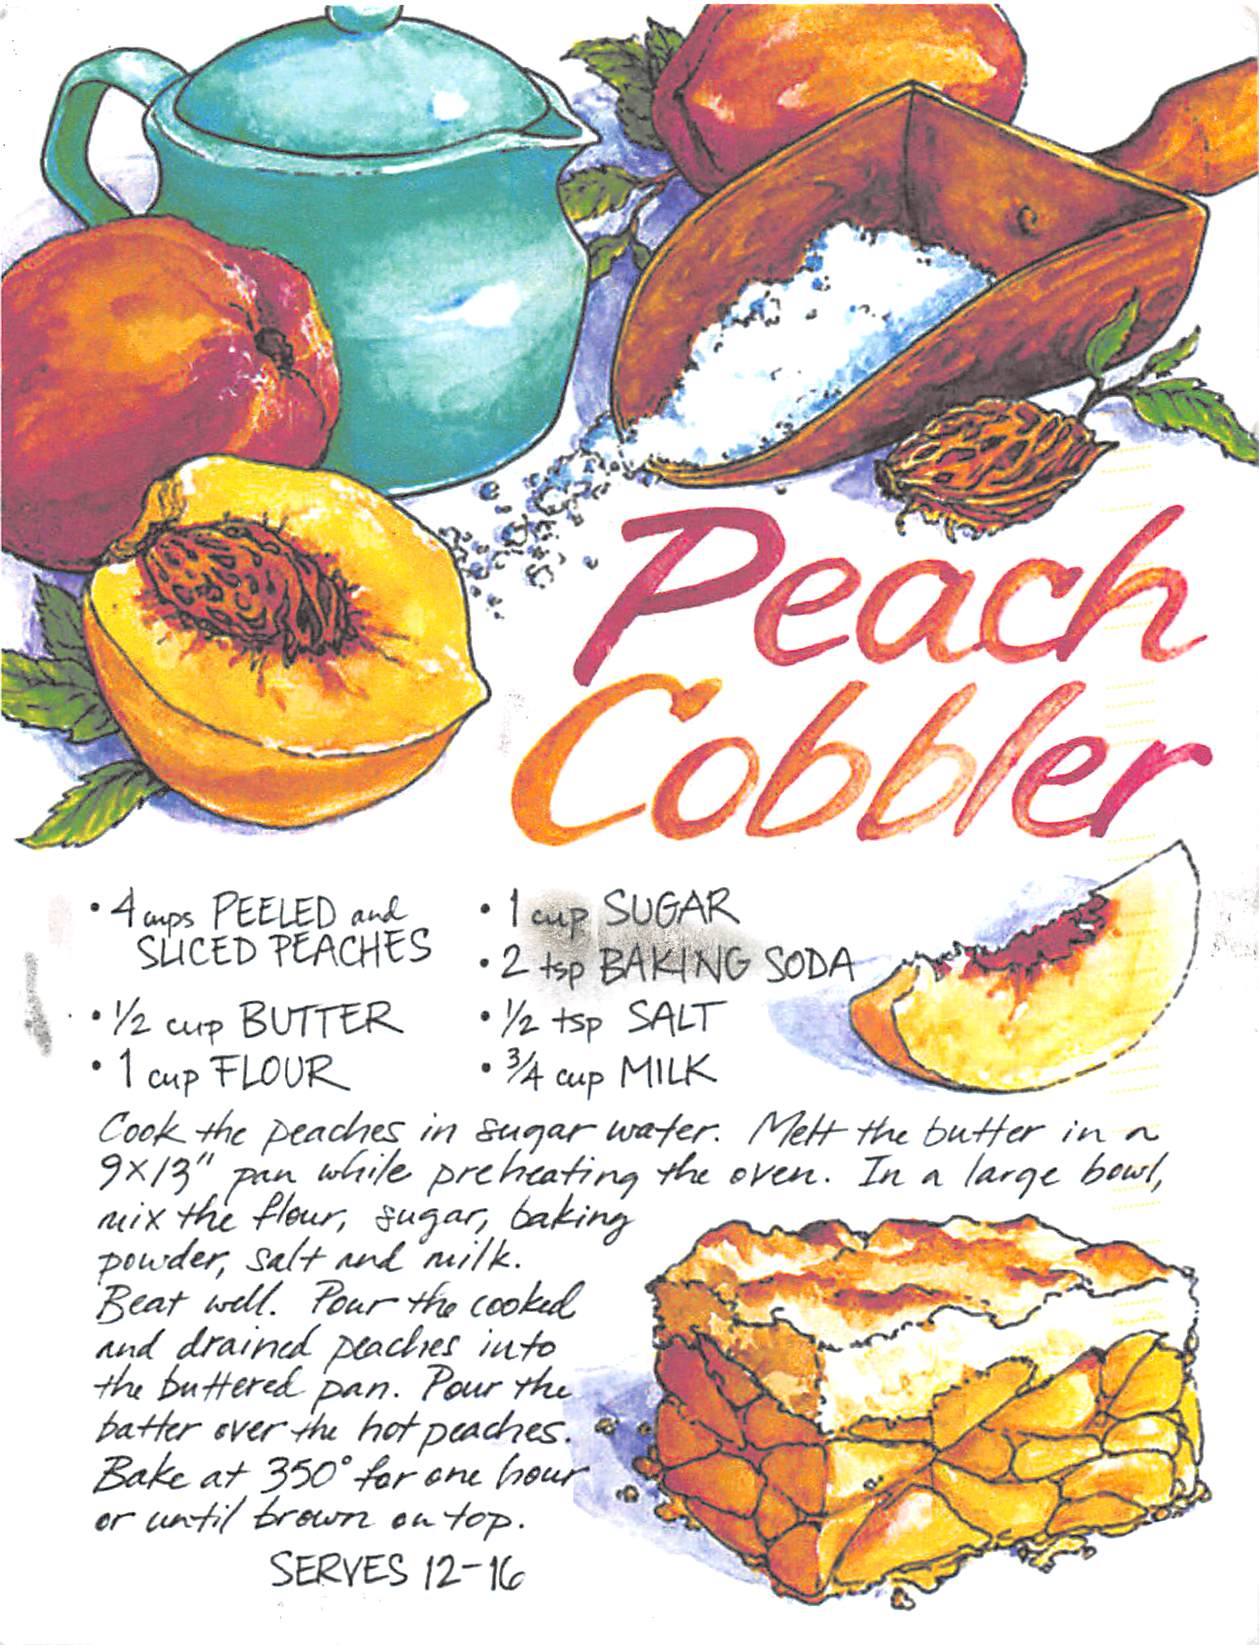 Peach
Cobbler
• 4 cups PEELED and
SLICED PEACHES
• 1/2 cup BUTTER
• 1 cup FLOUR
• 1 cup SUGAR
• 2 tsp BAKING SODA
• 1/2 tsp SALT
• 3/4 cup MILK
Cook the peaches in sugar water. Melt the butter in a
9x13" pan while preheating the oven. In a large bowl,
mix the flour, sugar, baking
powder, salt and milk.
Beat well. Pour the cooked
and drained peaches into
the buttered pan. Pour the
batter over the hot peaches.
Bake at 350° for one hour
or until brown on top.
SERVES 12-16